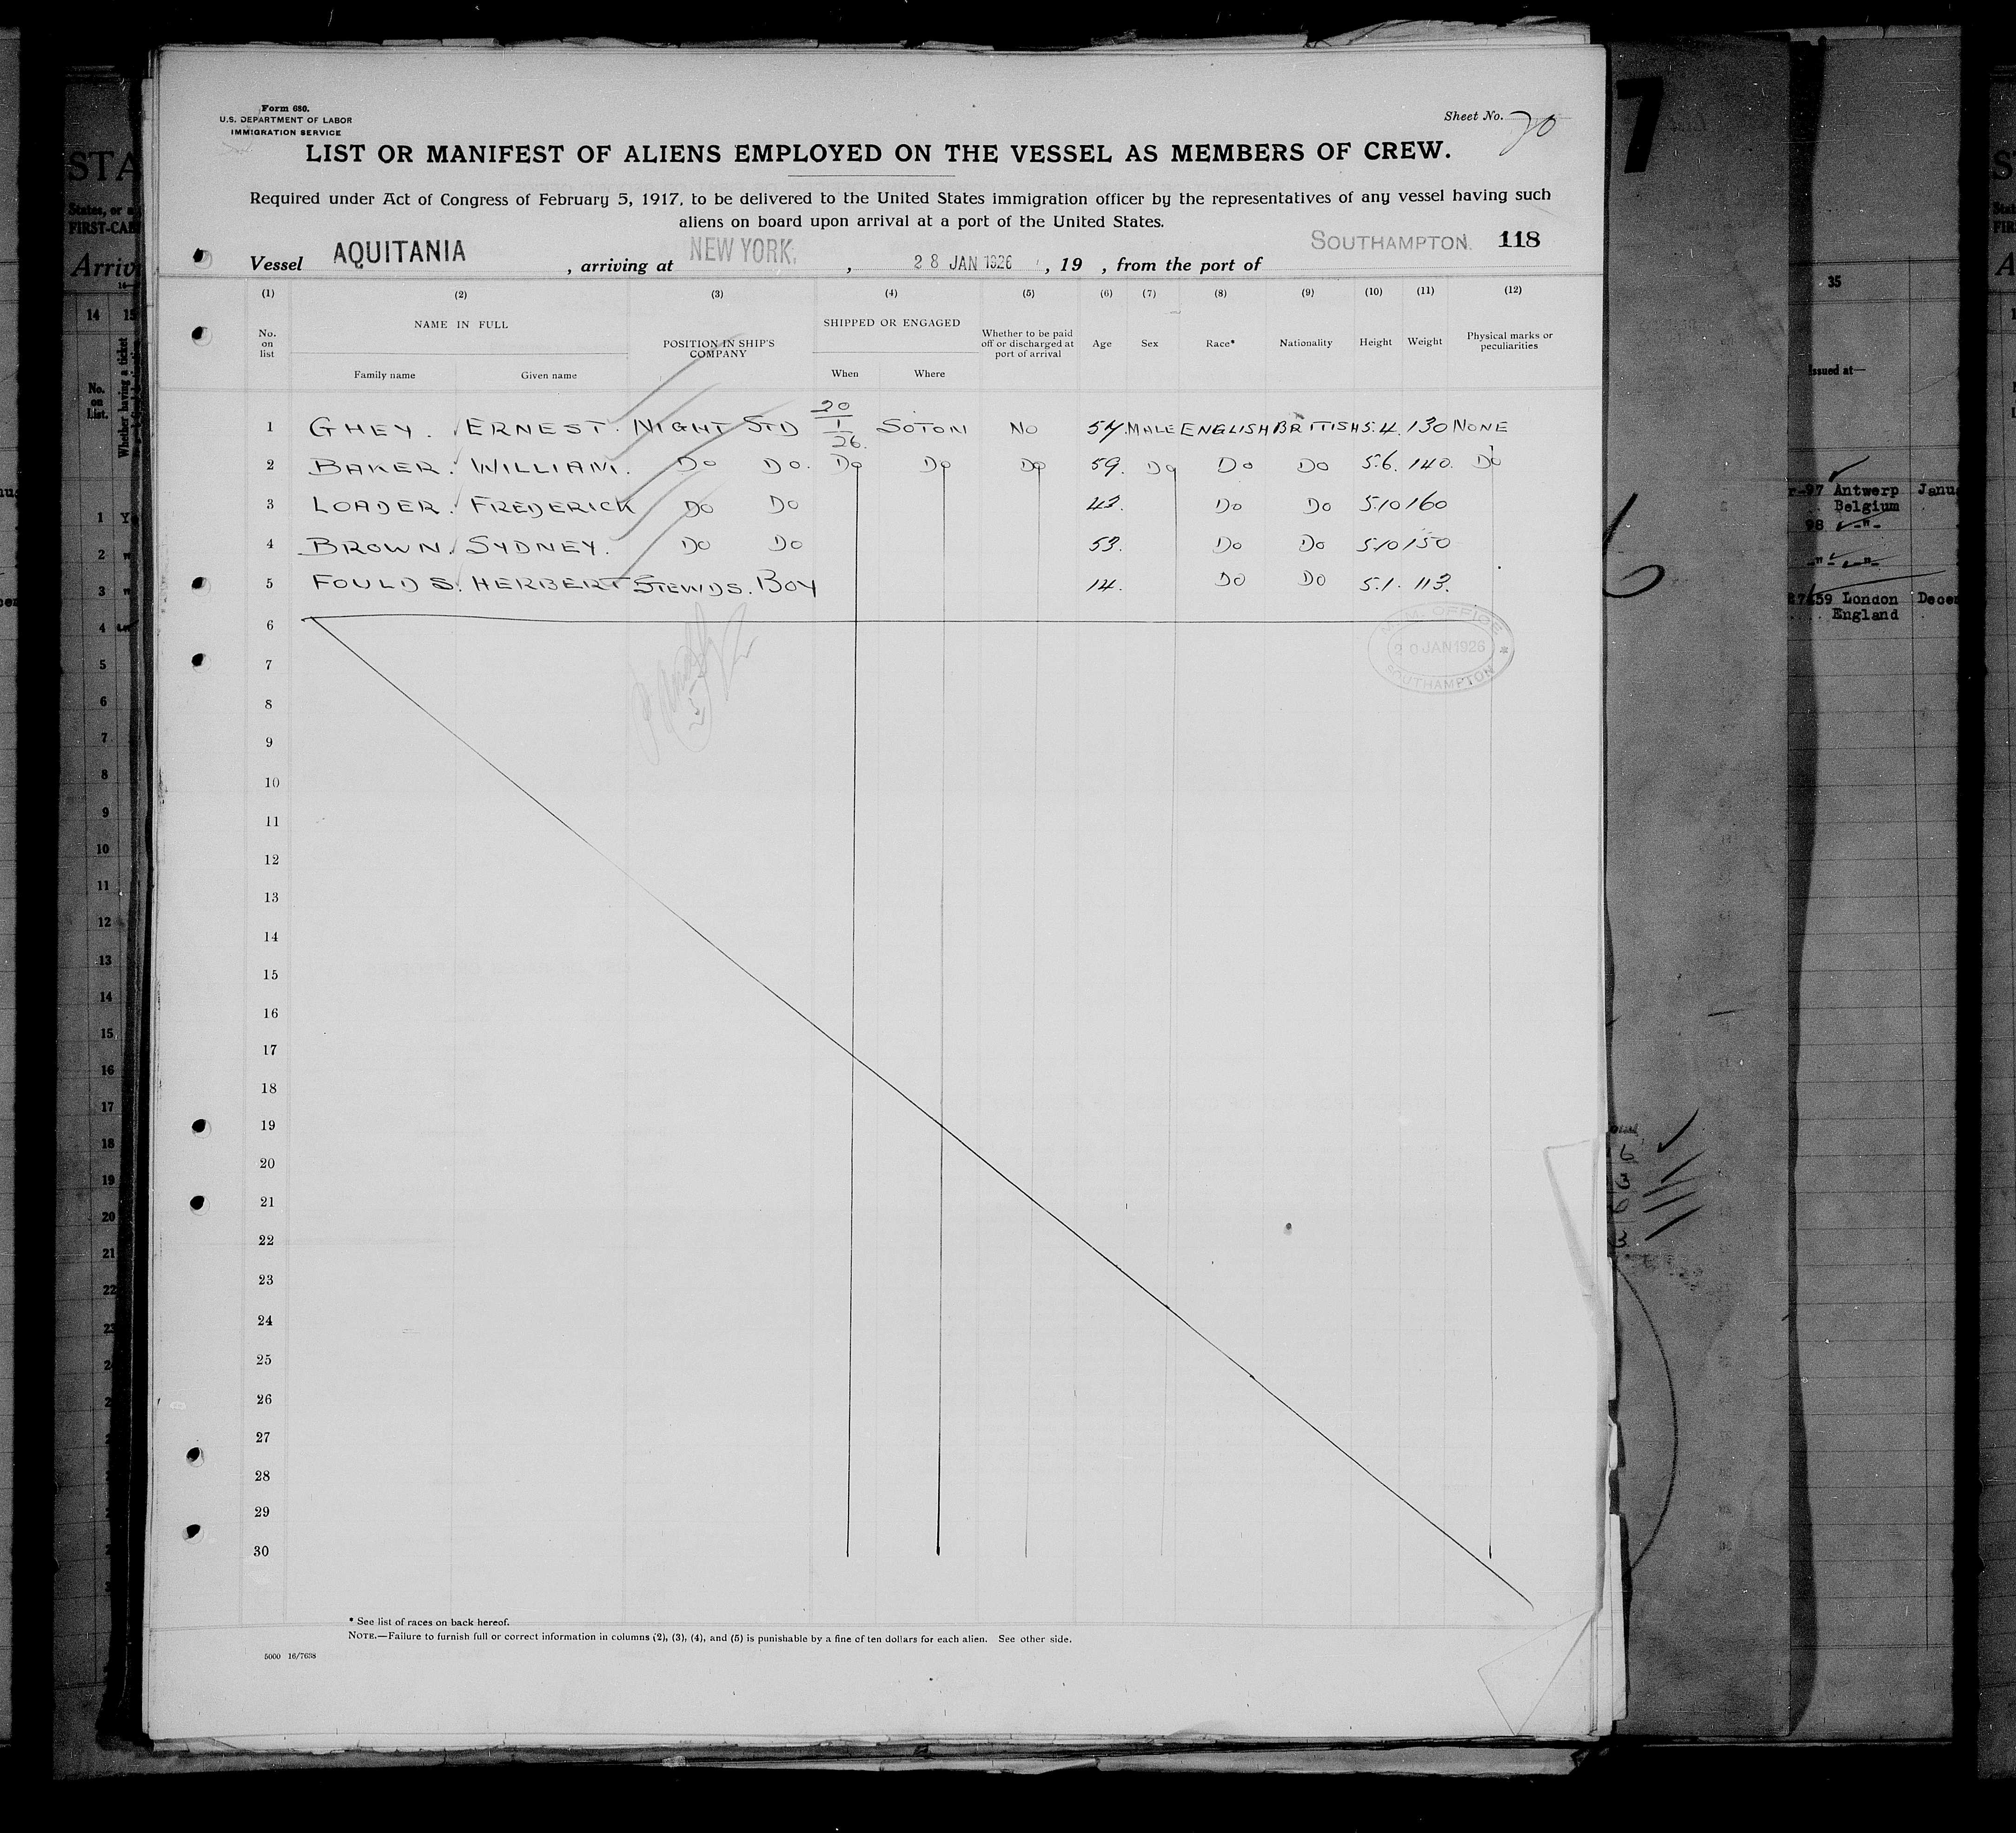 Form 680.
U.S. DEPARTMENT OF LABOR
IMMIGRATION SERVICE
Sheet No. 20
LIST OR MANIFEST OF ALIENS EMPLOYED ON THE VESSEL AS MEMBERS OF CREW.
Required under Act of Congress of February 5, 1917, to be delivered to the United States immigration officer by the representatives of any vessel having such
aliens on board upon arrival at a port of the United States.
Vessel AQUITANIA, arriving at NEW YORK, 28 JAN 1926, 19 , from the port of SOUTHAMPTON. 118
(1) (2) (3) (4) (5) (6) (7) (8) (9) (10) (11) (12)
No. on list
NAME IN FULL
Family name Given name
POSITION IN SHIP'S COMPANY
SHIPPED OR ENGAGED
When Where
Whether to be paid off or discharged at port of arrival
Age Sex Race* Nationality Height Weight
Physical marks or peculiarities
1 GHEY. ERNEST. NIGHT STD 20/1/26. SOTON NO MALE ENGLISH BRITISH 5.4. 130 NONE
2 BAKER. WILLIAM. DO DO. DO DO DO 59. DO DO DO 5.6. 140. DO
3 LOADER. FREDERICK DO DO 43. DO DO 5.10 160
4 BROWN. SYDNEY. DO DO 53. DO DO 5.10 150
5 FOULDS. HERBERT STEWDS. BOY 14. DO DO 5.1. 113.
6
7
8
9
10
11
12
13
14
15
16
17
18
19
20
21
22
23
24
25
26
27
28
29
30
M.M. OFFICE
20 JAN 1926
SOUTHAMPTON
* See list of races on back hereof.
NOTE.—Failure to furnish full or correct information in columns (2), (3), (4), and (5) is punishable by a fine of ten dollars for each alien. See other side.
5000 16/7638
STA
States, or a
FIRST-CAB
Arriv
14 15
No. on List.
Whether having a ticket
1
2
3
4
5
6
7
8
9
10
11
12
13
14
15
16
17
18
19
20
21
22
7
35
Issued at—
Antwerp
Belgium
98
London
England